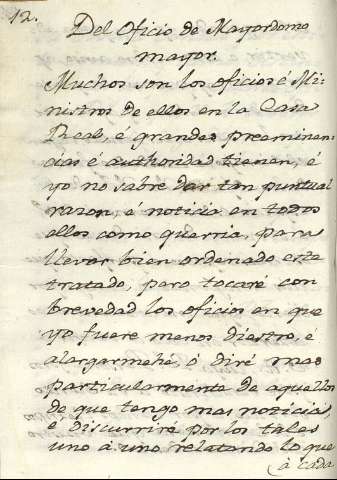 12.
Del Oficio de Mayordomo
mayor.
Muchos son los oficios é Mi-
nistros de ellos en la Casa
Real, é grandes preeminen-
cias é authoridad tienen, é
yo no sabre dar tan puntual
razon, é noticia en todos
ellos como querria, para
llevar bien ordenado este
tratado, pero tocaré con
brevedad los oficios en que
yo fuere menos diestro, é
alargarmehé, ó diré mas
particularmente de aquellos
de que tengo mas noticias,
é discurriré por los tales
uno á uno relatando lo que
á cada